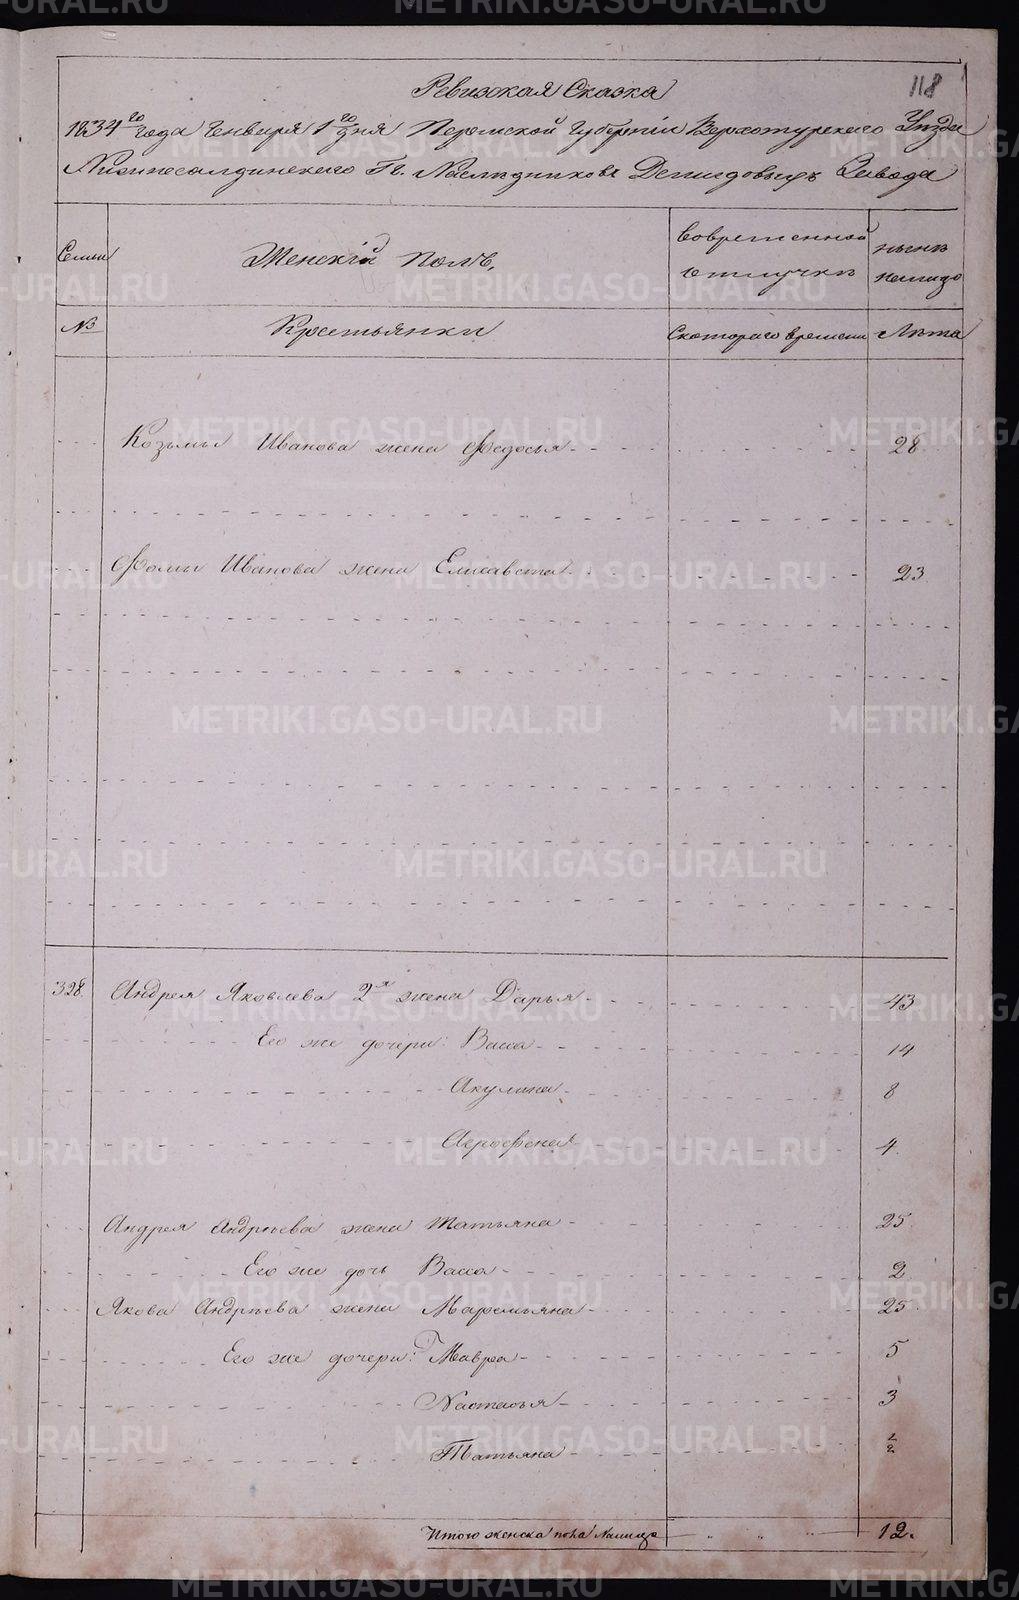 118
Ревизская Сказка
1834го года Генваря 1го дня Пермской Губернiи Верхотурскаго Уезда
Нижнесалдинскаго Гг. Наследниковъ Демидовыхъ Завода
Семьи Женскiй полъ, Вовременной отлучке ныне налицо
№ Крестьянки Скотораго времени Лета
Козьмы Иванова жена Федосья 28.
Фомы Иванова жена Елисавета 23.
328. Андрея Яковлева 2я жена Дарья 43
Его же дочери: Васса 14
Акулина 8
Агрофена 4.
Андрея Андреева жена Татьяна 25
Его же дочь Васса 2
Якова Андреева жена Маремьяна 25
Его же дочери: Мавра 5
Настасья 3
Татьяна 1/2
Итого женска пола налицо 12.
METRIKI.GASO-URAL.RU